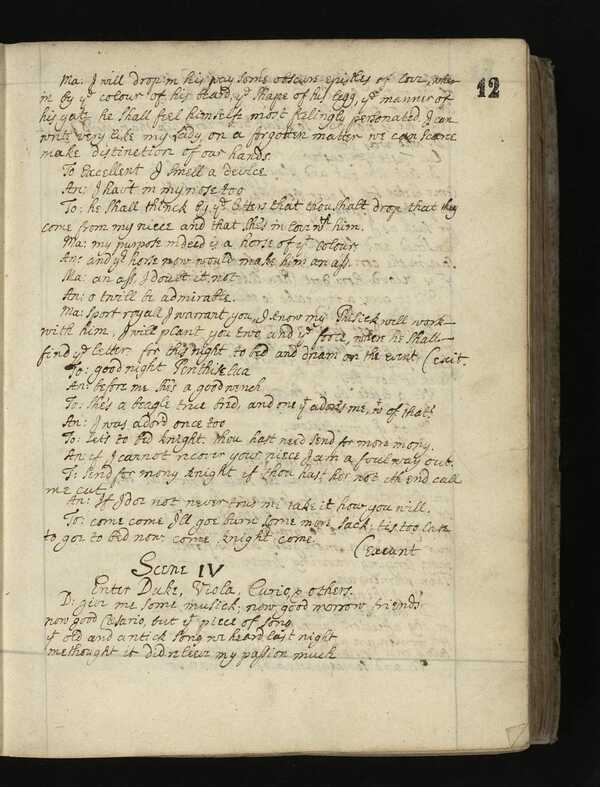 12
Ma: I will drop in his way some obscure epistles of love, wher
in by yᵉ colour of his beard, yᵉ shape of his legg, yᵉ manner of
his gate he shall feel himselfe most feelingly personated, I can
write very like my Lady, on a forgotten matter we can scarce
make distinction of our hands
To Excellent I smell a device
An: I hav't in my nose too
To: he shall thinck by yᵉ letters that thou shalt drop that they
come from my niece and that she's in love wᵗʰ him.
Ma: my purpose indeed is a horse of yᵗ colour
An: and yᵉ horse now would make him an ass.
Ma: an ass, I doubt it not
An: o twill be admirable.
Ma: sport royall I warrant you, I know my Phisick will work
with him, I will plant you two, and yᵉ foole, where he shall
find yᵉ letter for this night to bed and dream on the event (exit.
To: good night Penthiselea
An: before me she's a good wench
To: she's a beagle true bred, and one yᵗ adores me, wᵗ of that?
An: I was ador'd once too
To: let's to bed knight. thou hast need send for more mony.
An: if I cannot recover your niece I am a foul way out.
T: send for mony knight if thou hast her not ith end call
me cut.
An: If I doe not never trust me take it how you will.
To: come come I'll goe burn some more sack, tis too late
to goe to bed now come knight come.
(exeunt
Scene IV
Enter Duke, Viola, Curio, & others.
D: give me some musick; now, good morrow friends
now good Cesario, but yᵗ piece of song
yᵗ old and antick song we heard last night
methought it did relieve my passion much